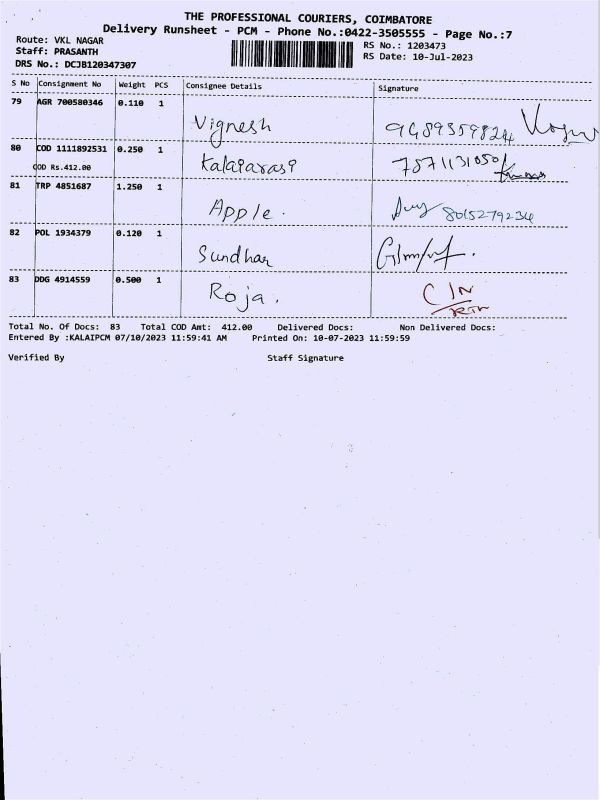 THE PROFESSIONAL COURIERS, COIMBATORE
Delivery Runsheet - PCM - Phone No.:0422-3505555 - Page No.:7
Route: VKL NAGAR
Staff: PRASANTH
DRS No.: DCJB120347307
RS No.: 1203473
RS Date: 10-Jul-2023
S No Consignment No Weight PCS Consignee Details Signature
79 AGR 700580346 0.110 1
Vignesh 9489359824
80 COD 1111892531 0.250 1
COD Rs.412.00
Kalaiarasi
81 TRP 4851687 1.250 1
Apple. 8015279234
82 POL 1934379 0.120 1
Sundhar
83 DDG 4914559 0.500 1
Roja.
Total No. Of Docs: 83 Total COD Amt: 412.00 Delivered Docs: Non Delivered Docs:
Entered By :KALAIPCM 07/10/2023 11:59:41 AM Printed On: 10-07-2023 11:59:59
Verified By Staff Signature